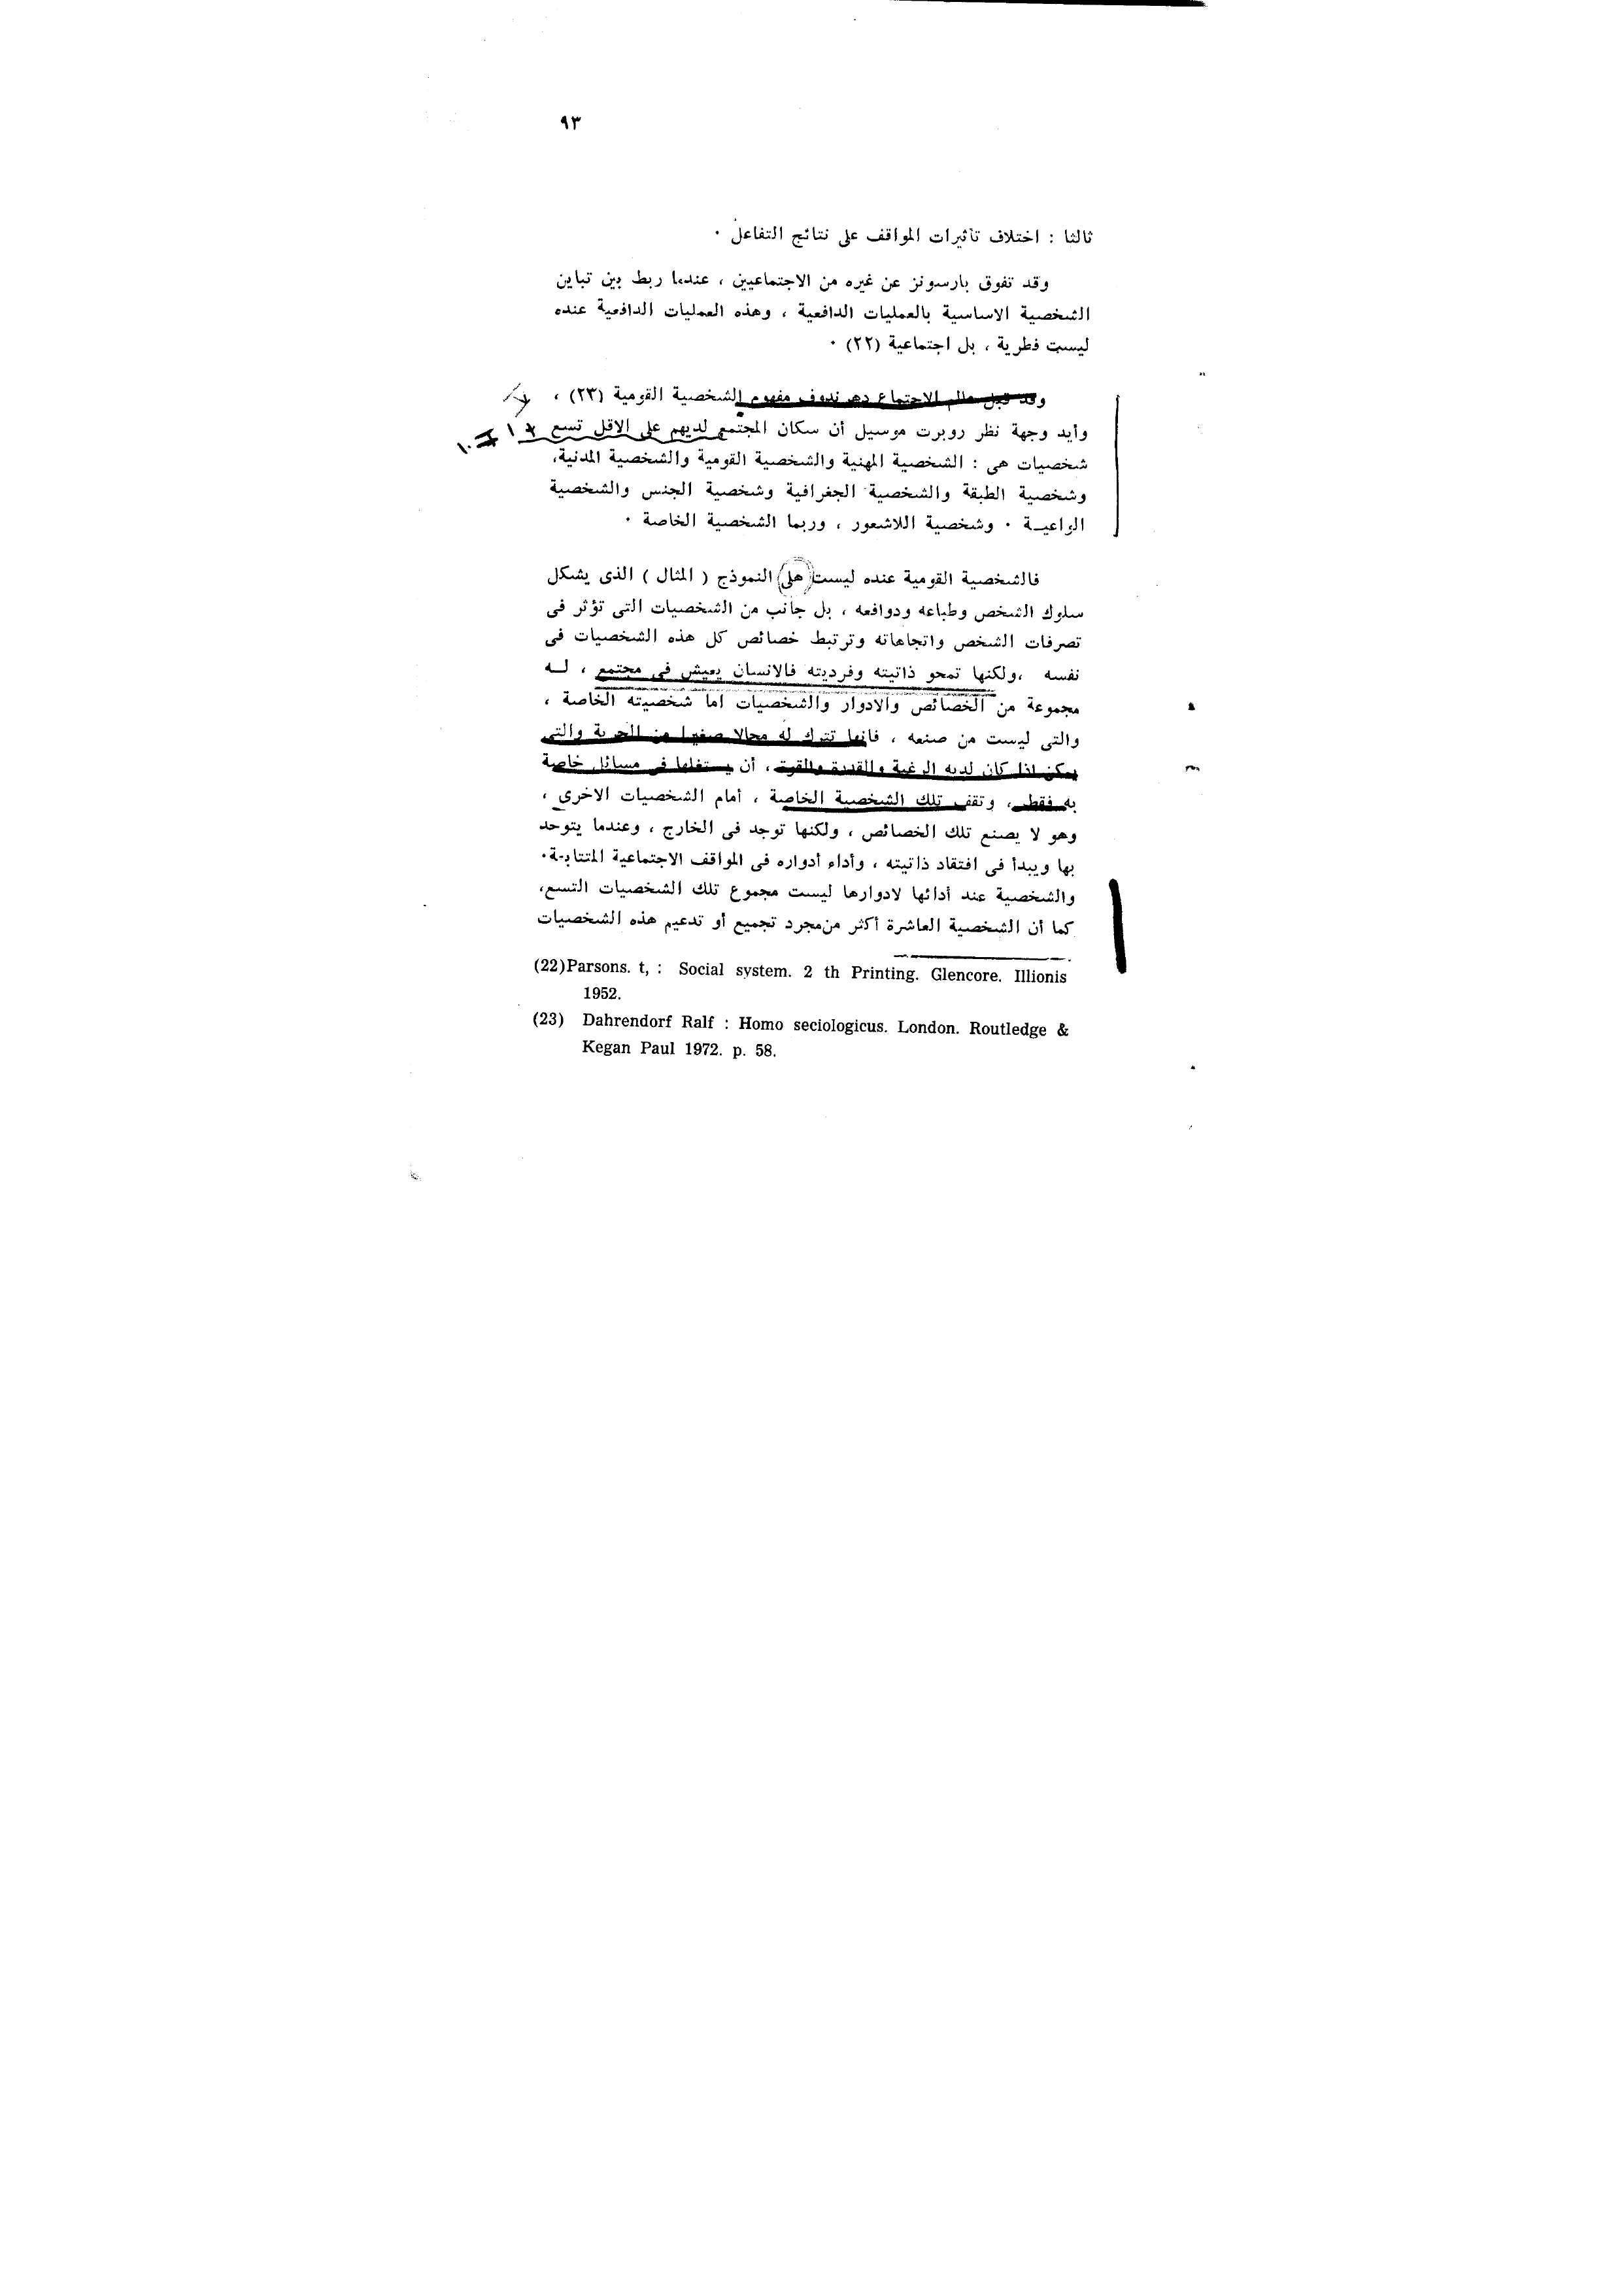 ٩٣
ثالثا : اختلاف تأثيرات المواقف على نتائج التفاعل ٠
وقد تفوق بارسونز عن غيره من الاجتماعيين ، عندما ربط بين تباين
الشخصية الاساسية بالعمليات الدافعية ، وهذه العمليات الدافعية عنده
ليست فطرية ، بل اجتماعية (٢٢) ٠
وقد قبل عالم الاجتماع دهرندوف مفهوم الشخصية القومية (٢٣) ،
وأيد وجهة نظر روبرت موسيل أن سكان المجتمع لديهم على الاقل تسع
شخصيات هى : الشخصية المهنية والشخصية القومية والشخصية المدنية،
وشخصية الطبقة والشخصية الجغرافية وشخصية الجنس والشخصية
الواعيـة ٠ وشخصية اللاشعور ، وربما الشخصية الخاصة ٠
فالشخصية القومية عنده ليست هى النموذج ( المثال ) الذى يشكل
سلوك الشخص وطباعه ودوافعه ، بل جانب من الشخصيات التى تؤثر فى
تصرفات الشخص واتجاهاته وترتبط خصائص كل هذه الشخصيات فى
نفسه ،ولكنها تمحو ذاتيته وفرديته فالانسان يعيش فى مجتمع ، لـه
مجموعة من الخصائص والادوار والشخصيات أما شخصيته الخاصة ،
والتى ليست من صنعه ، فانها تترك له مجالا صغيرا من الحرية والتى
يمكن اذا كان لديه الرغبة والقدرة والقوة ، أن يستغلها فى مسائل خاصة
به فقط ، وتقف تلك الشخصية الخاصة ، أمام الشخصيات الاخرى ،
وهو لا يصنع تلك الخصائص ، ولكنها توجد فى الخارج ، وعندما يتوحد
بها ويبدأ فى افتقاد ذاتيته ، وأداء أدواره فى المواقف الاجتماعية المتتابعة٠
والشخصية عند أدائها لادوارها ليست مجموع تلك الشخصيات التسع،
كما أن الشخصية العاشرة أكثر من مجرد تجميع أو تدعيم هذه الشخصيات
(22)Parsons. t, : Social system. 2 th Printing. Glencore. Illionis
1952.
(23) Dahrendorf Ralf : Homo seciologicus. London. Routledge &
Kegan Paul 1972. p. 58.